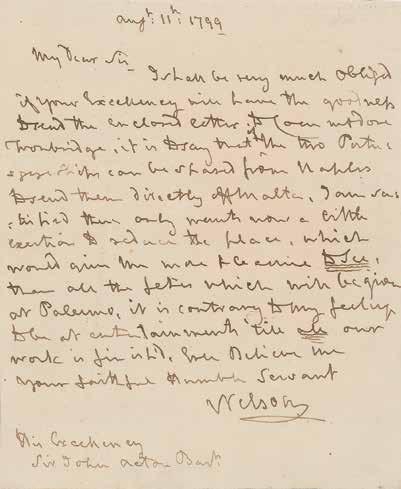 Augt. 11th: 1799
My Dear Sir
I shall be very much Obliged
if Your Excellency will have the goodness
to send the enclosed letter to
Troubridge, it is to say that if the two Portu-
-gueze Ships can be spared from Naples
to send them directly off Malta, I am sa-
-tisfied there only wants now a little
exertion to reduce the place, which
would give me more pleasure to See,
than all the fetes which will be given
at Palermo, it is contrary to my feelings
to be at entertainments 'till all our
work is finish'd, Ever Believe me
Your faithful Humble Servant
Nelson
His Excellency
Sir John Acton Bart.